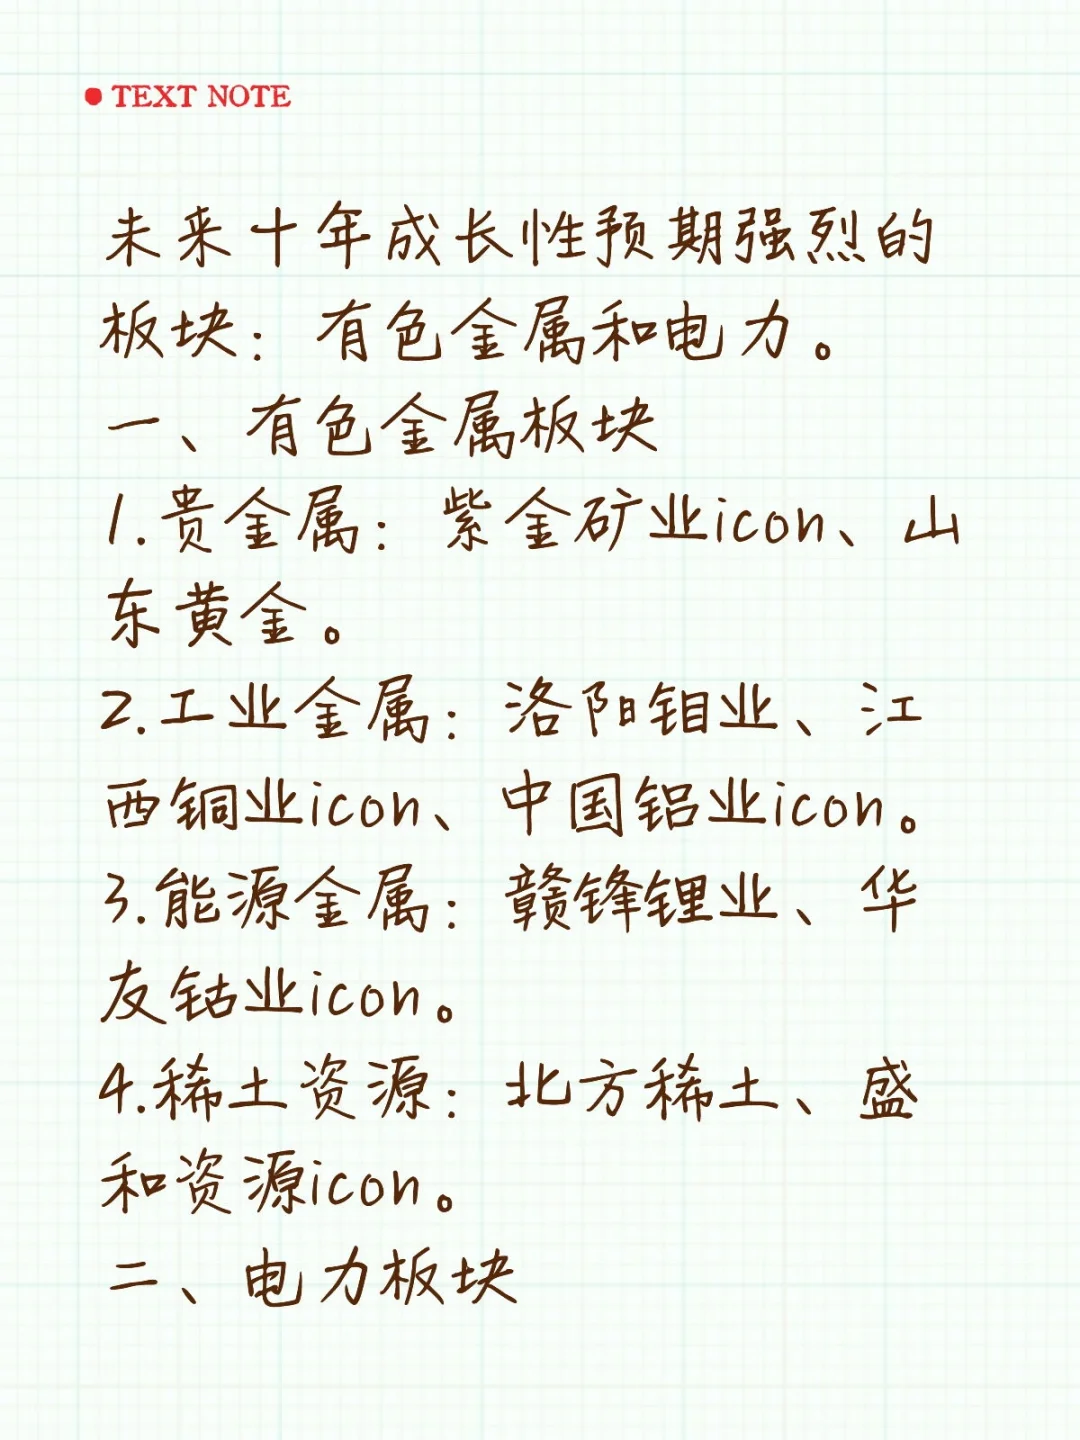 TEXT NOTE
未来十年成长性预期强烈的
板块：有色金属和电力。
一、有色金属板块
1.贵金属：紫金矿业icon、山
东黄金。
2.工业金属：洛阳钼业、江
西铜业icon、中国铝业icon。
3.能源金属：赣锋锂业、华
友钴业icon。
4.稀土资源：北方稀土、盛
和资源icon。
二、电力板块